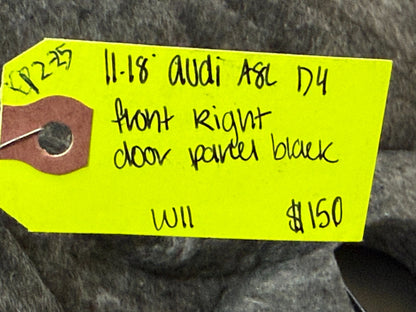 CP225
11-18' audi A8L D4
front Right
door panel black
W11
$150